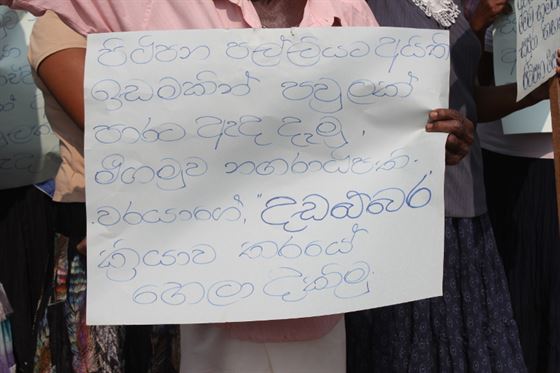 පිටිපන පල්ලියට අයිති
ඉඩමකින් පවුලක්
පාරට ඇද දැමු,
මීගමුව නගරාධිපති
වරයාගේ, "දඩබ්බර
ක්‍රියාව තරයේ
හෙලා දකිමු